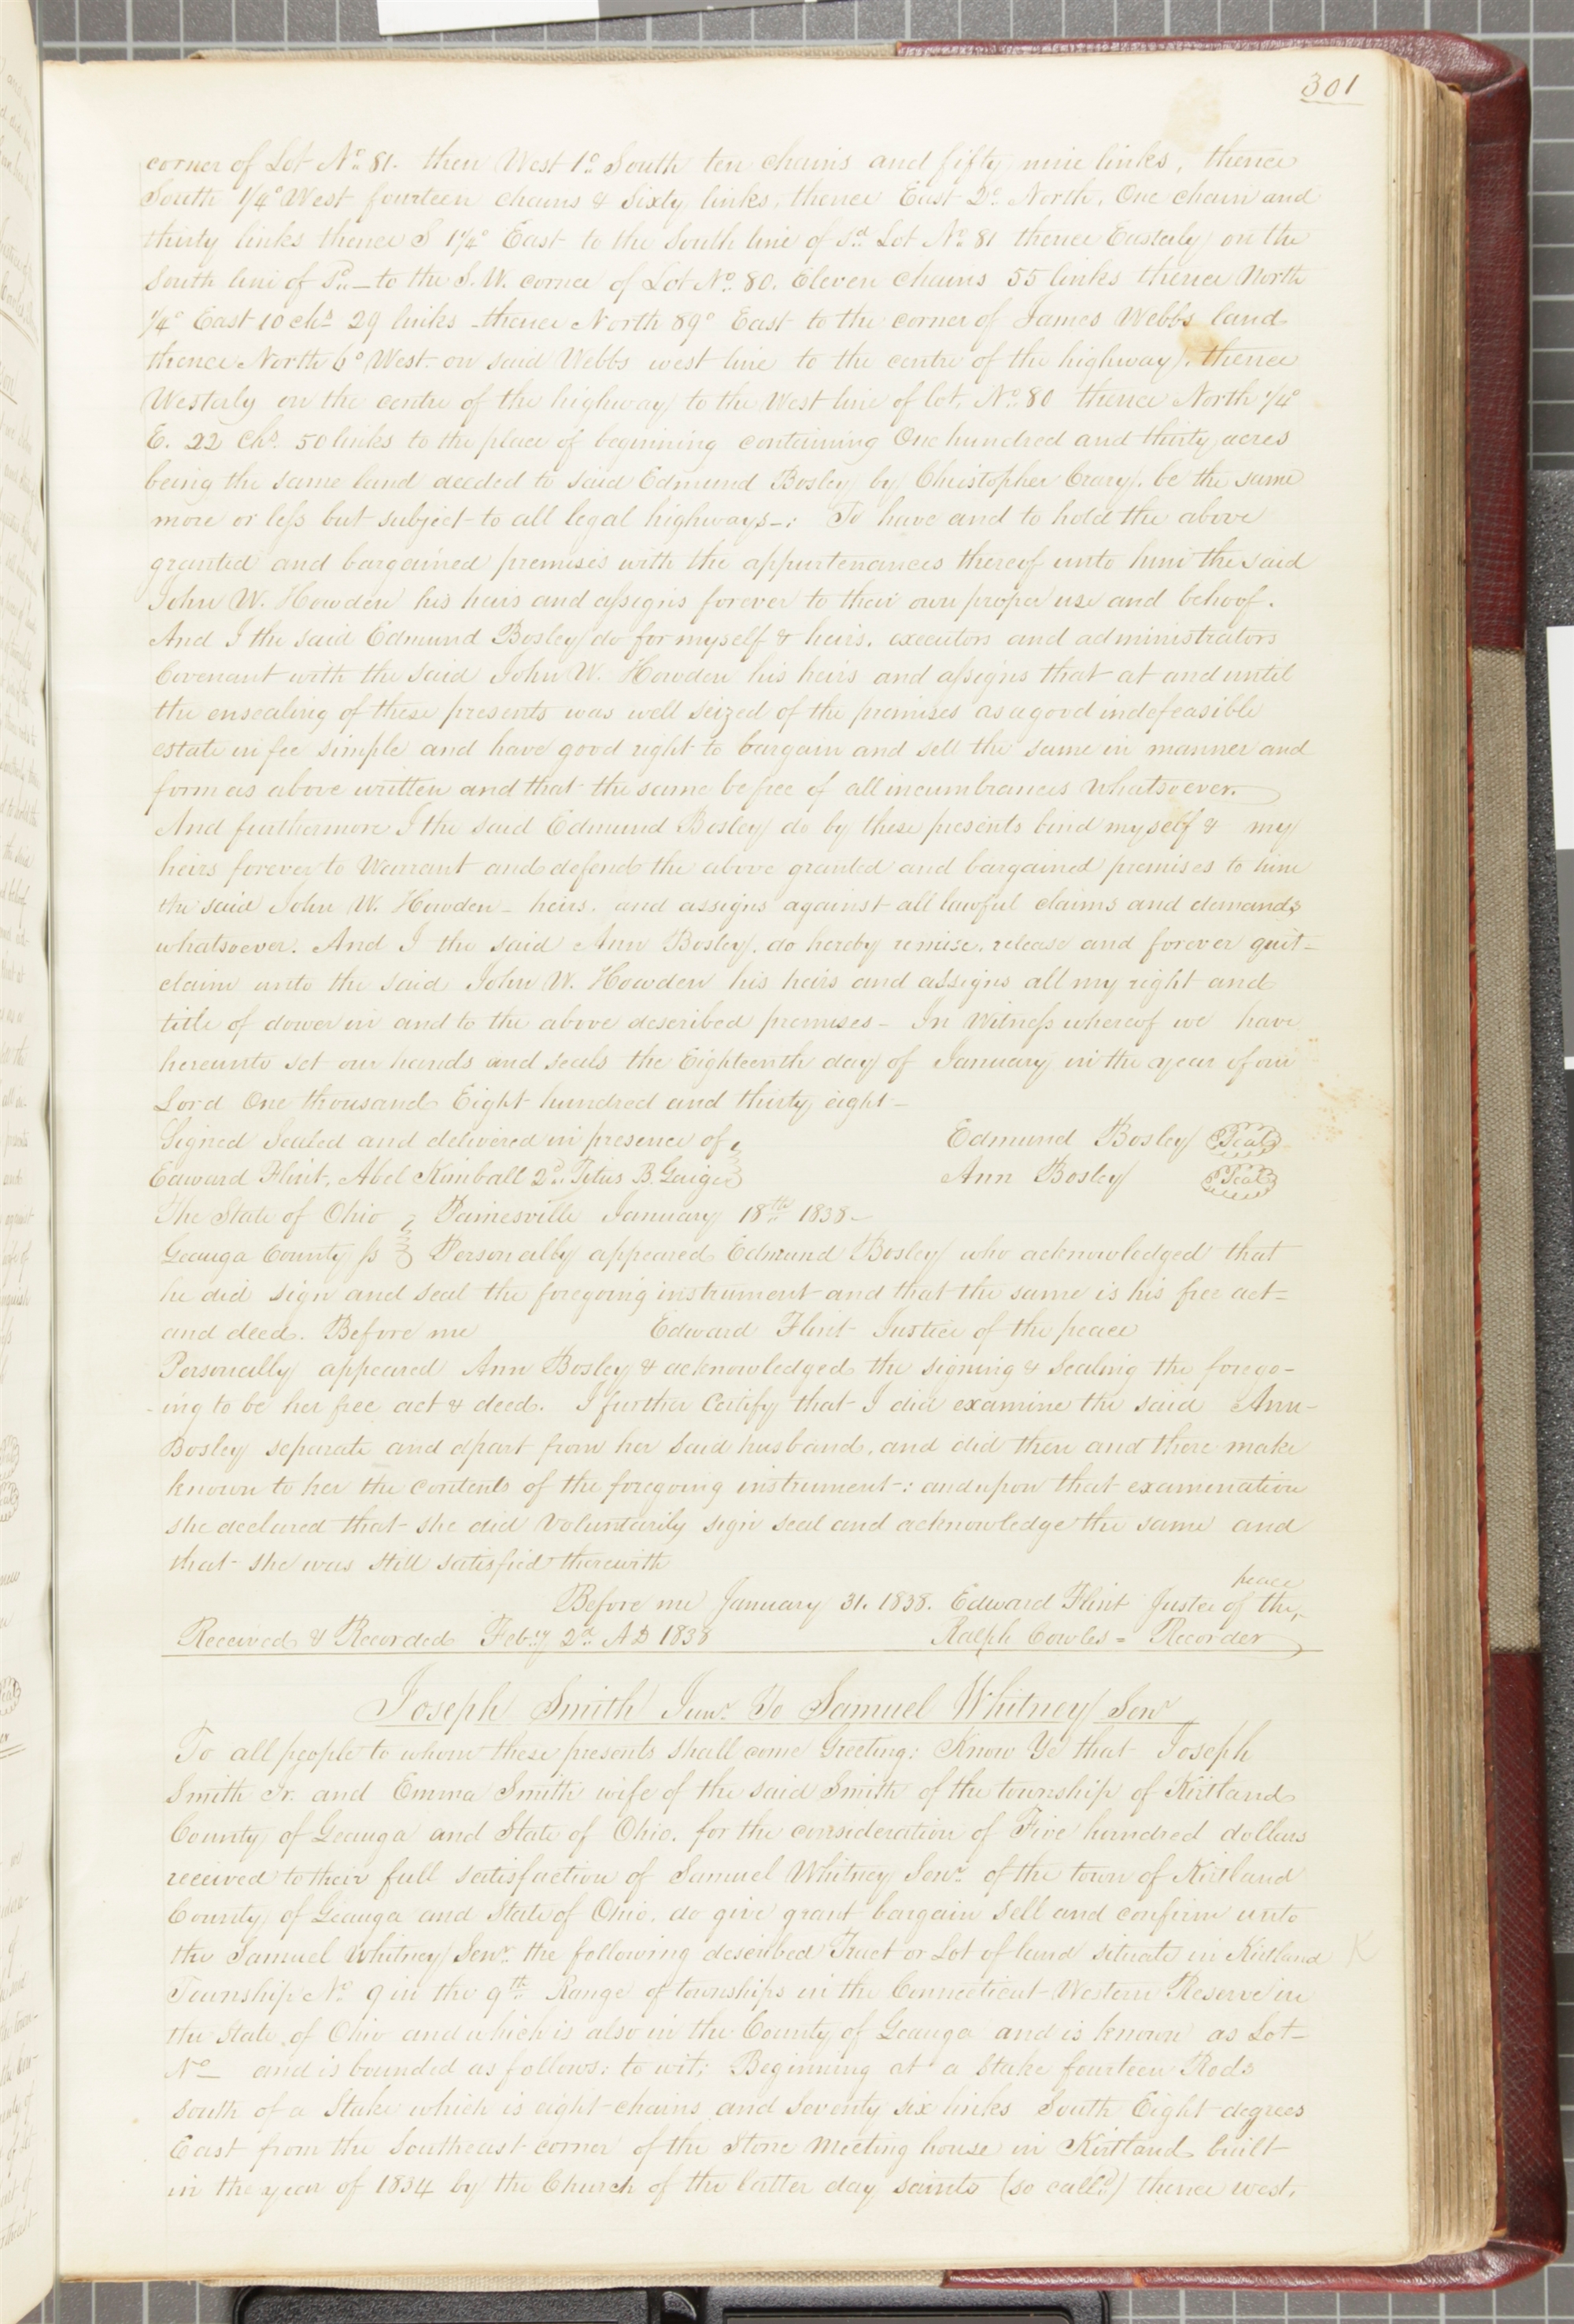 301
corner of Lot No. 81. then West 1° South ten chains and fifty nine links, thence
South 1/4° West fourteen chains & Sixty links, thence East 2° North, One chain and
thirty links thence S 1 1/4° East to the South line of sd Lot No. 81 thence Easterly on the
South line of sd — to the S. W. corner of Lot No. 80. Eleven chains 55 links thence North
1/4° East 10 chs 29 links - thence North 89° East to the corner of James Webbs land
thence North 6° West on said Webbs west line to the centre of the highway, thence
Westerly on the centre of the highway to the West line of lot, No. 80 thence North 1/4°
E. 22 Chs. 50 links to the place of beginning containing One hundred and thirty acres
being the same land deeded to said Edmund Bosley by Christopher Crary. be the same
more or less but subject to all legal highways -: To have and to hold the above
granted and bargained premises with the appurtenances thereof unto him the said
John W. Howden his heirs and assigns forever to their own proper use and behoof.
And I the said Edmund Bosley do for myself & heirs, executors and administrators
Covenant with the said John W. Howden his heirs and assigns that at and until
the ensealing of these presents was well seized of the premises as a good indefeasible
estate in fee simple and have good right to bargain and sell the same in manner and
form as above written and that the same be free of all incumbrances whatsoever.
And furthermore I the said Edmund Bosley do by these presents bind myself & my
heirs forever to Warrant and defend the above granted and bargained premises to him
the said John W. Howden - heirs, and assigns against all lawful claims and demands
whatsoever. And I the said Ann Bosley, do hereby remise, release and forever quit=
claim unto the said John W. Howden his heirs and assigns all my right and
title of dower in and to the above described premises - In Witness whereof we have
hereunto set our hands and seals the Eighteenth day of January in the year of our
Lord One thousand Eight hundred and thirty eight -
Signed Sealed and delivered in presence of Edmund Bosley Seal
Edward Flint, Abel Kimball 2d, Titus B. Guiger Ann Bosley Seal
The State of Ohio Painesville January 18th 1838 -
Geauga County ss Personally appeared Edmund Bosley who acknowledged that
he did sign and seal the foregoing instrument and that the same is his free act=
and deed. Before me Edward Flint Justice of the peace
Personally appeared Ann Bosley & acknowledged the signing & Sealing the forego-
-ing to be her free act & deed. I further Certify that I did examine the said Ann-
Bosley separate and apart from her said husband, and did then and there make
known to her the contents of the foregoing instrument -: and upon that examination
she declared that she did Voluntarily sign seal and acknowledge the same and
that she was still satisfied therewith
peace
Before me January 31. 1838. Edward Flint Juste of the
Received & Recorded Feb.y 2d AD 1838 Ralph Cowles = Recorder
Joseph Smith Junr. To Samuel Whitney Senr
To all people to whom these presents shall come Greeting: Know Ye that Joseph
Smith Jr. and Emma Smith wife of the said Smith of the township of Kirtland
County of Geauga and State of Ohio. for the consideration of Five hundred dollars
received to their full satisfaction of Samuel Whitney Senr. of the town of Kirtland
County of Geauga and State of Ohio, do give grant bargain sell and confirm unto
the Samuel Whitney Senr. the following described Tract or Lot of land situate in Kirtland K
Township No 9 in the 9th Range of townships in the Connecticut Western Reserve in
the State of Ohio and which is also in the County of Geauga and is known as Lot-
No — and is bounded as follows: to wit; Beginning at a Stake fourteen Rods
South of a Stake which is eight chains and Seventy six links South Eight degrees
East from the Southeast corner of the Stone Meeting house in Kirtland built
in the year of 1834 by the Church of the latter day saints (so call.d) thence west,